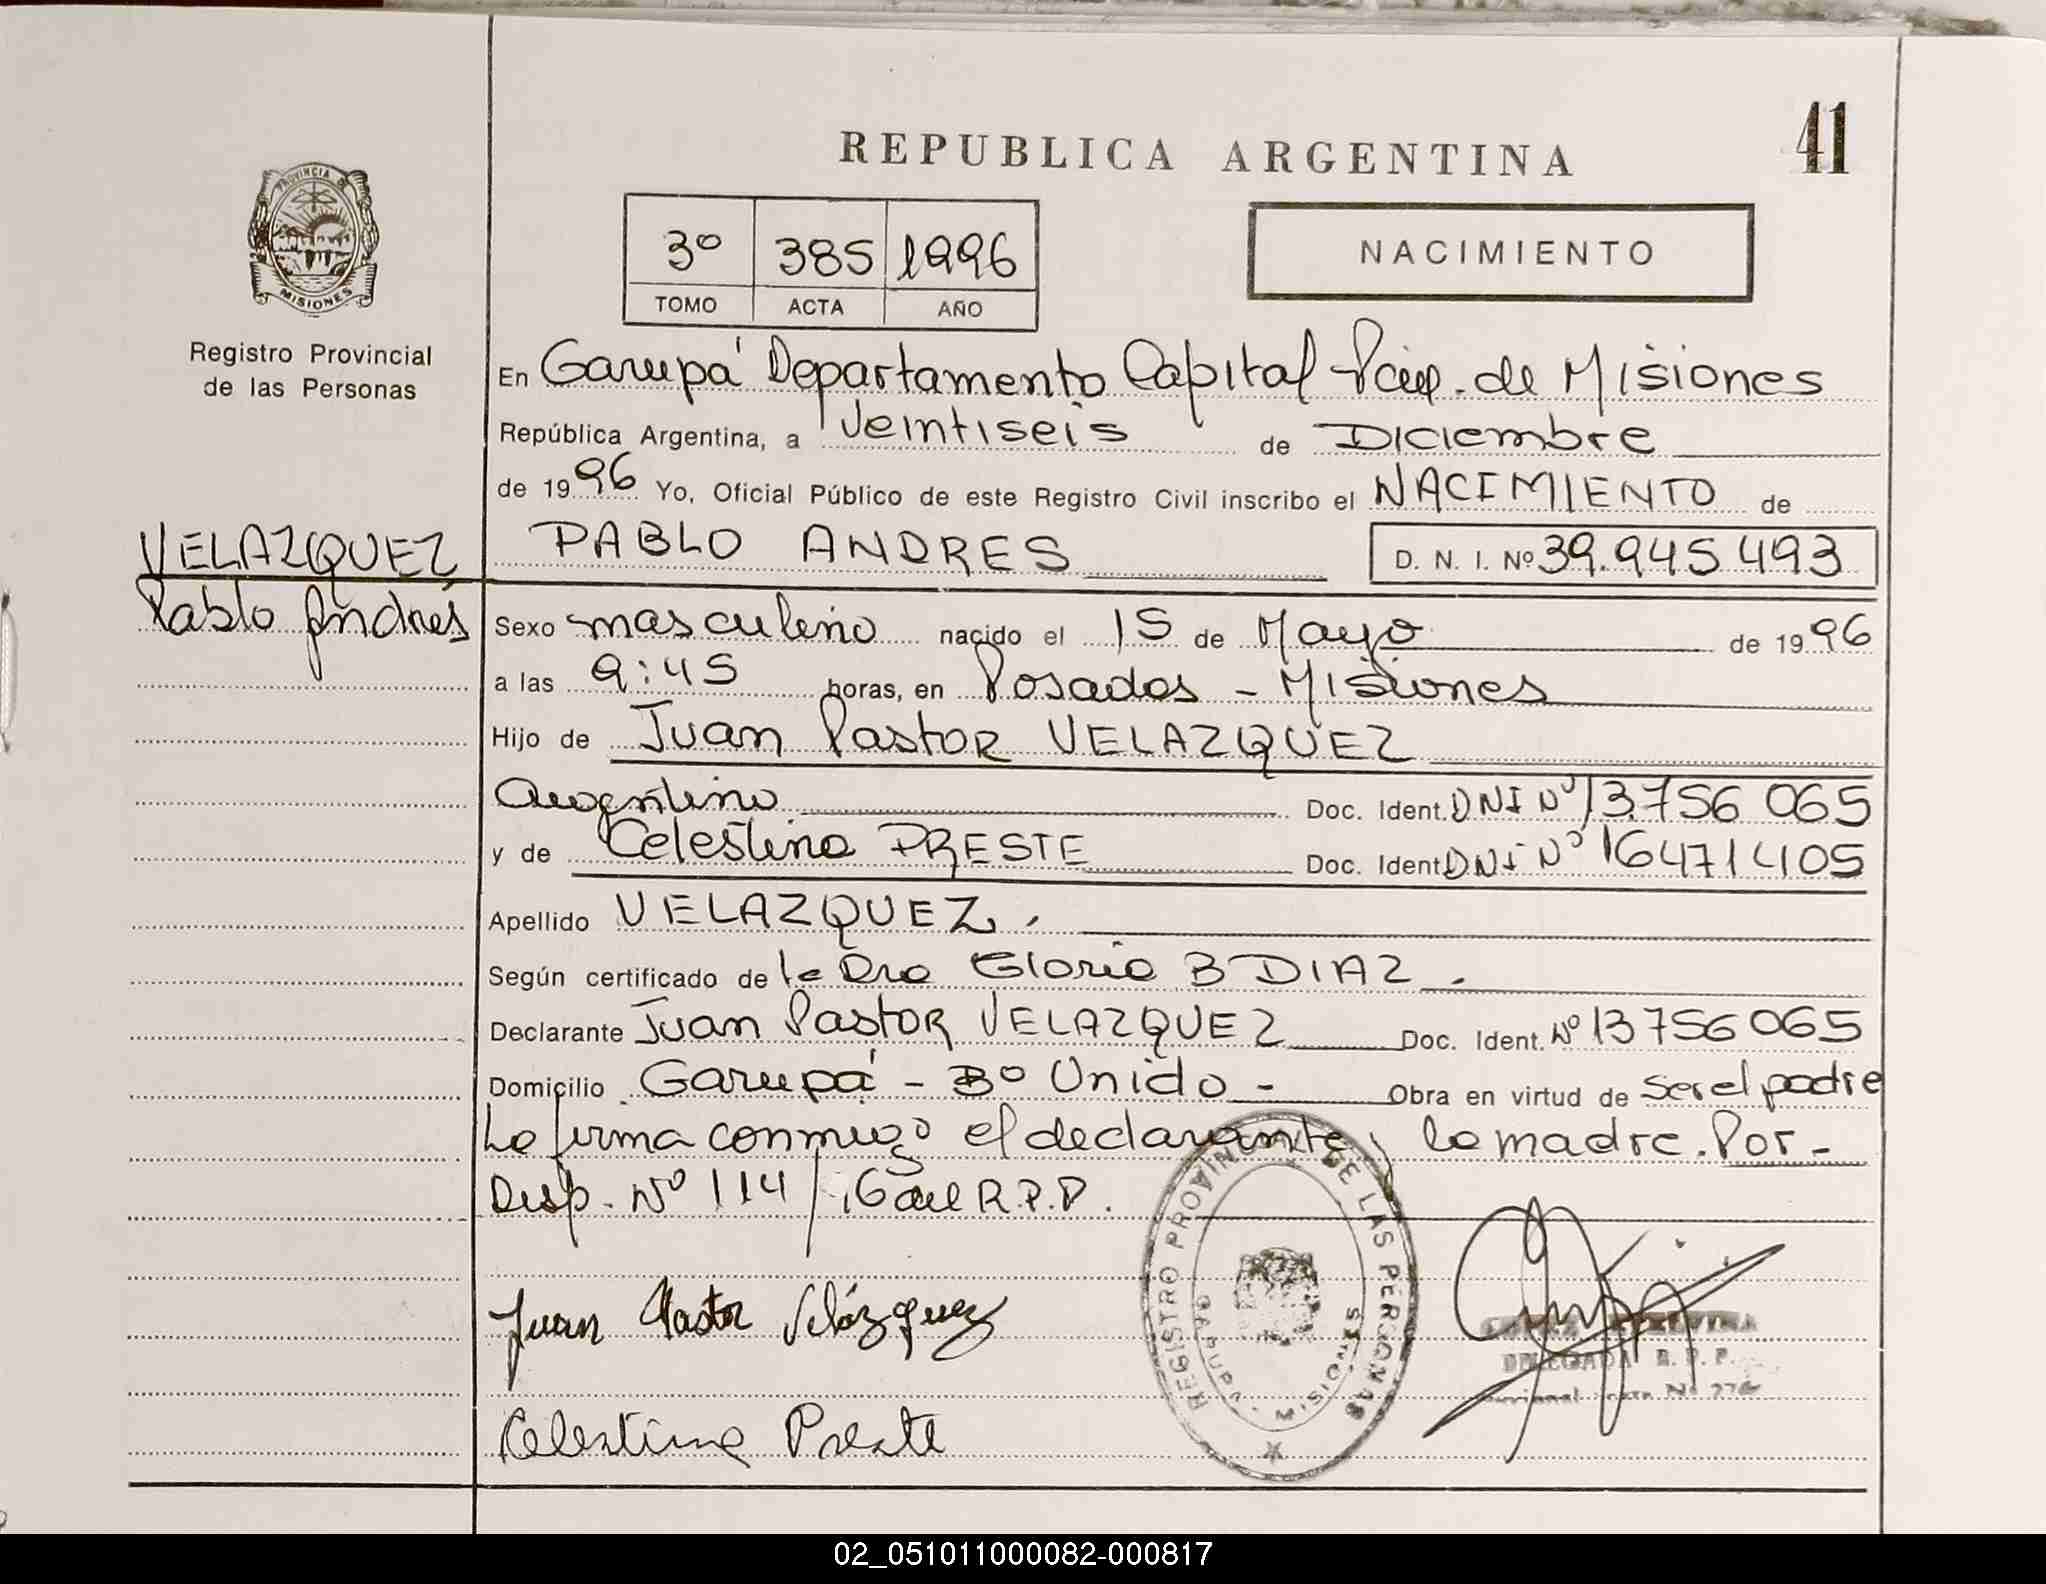 41
REPUBLICA ARGENTINA
PROVINCIA DE
MISIONES
3º 385 1996
TOMO ACTA AÑO
NACIMIENTO
Registro Provincial
de las Personas
En Garupá Departamento Capital Pcia. de Misiones
República Argentina, a Veintiseis de Diciembre
de 1996 Yo, Oficial Público de este Registro Civil inscribo el NACIMIENTO de
VELAZQUEZ PABLO ANDRES D. N. I. Nº 39.945.493
Pablo Andrés Sexo masculino nacido el 15 de Mayo de 1996
a las 9:45 horas, en Posadas - Misiones
Hijo de Juan Pastor VELAZQUEZ
Argentino Doc. Ident. DNI Nº 13.756 065
y de Celestina PRESTE Doc. Ident. DNI Nº 16471405
Apellido VELAZQUEZ.
Según certificado de la Dra Gloria B DIAZ.
Declarante Juan Pastor VELAZQUEZ Doc. Ident. Nº 13756065
Domicilio Garupá - Bº Unido - Obra en virtud de ser el padre
La firma conmigo el declarante y la madre. Por-
Disp. Nº 114/ del R.P.P.
REGISTRO PROVINCIAL DE LAS PERSONAS
GARUPA - MISIONES
Juan Pastor Velázquez
DELEGADA R. P. P.
Celestina Preste
02_051011000082-000817